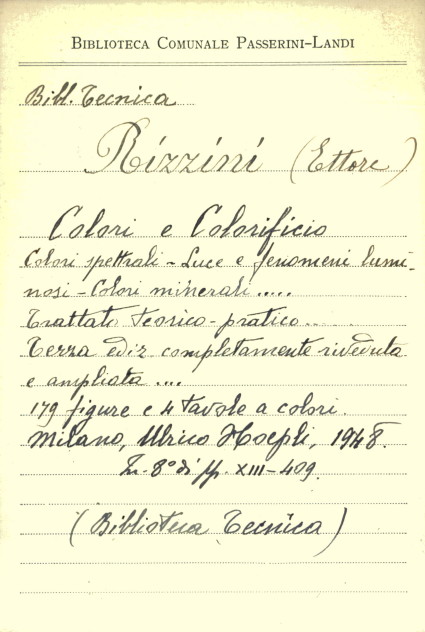 BIBLIOTECA COMUNALE PASSERINI-LANDI
Bibl. Tecnica
Rizzini (Ettore)
Colori e Colorificio
Colori spettrali - Luce e fenomeni lumi-
nosi - Colori minerali .....
Trattato teorico-pratico...
Terza ediz completamente riveduta
e ampliata ....
179 figure e 4 tavole a colori.
Milano, Ulrico Hoepli, 1948.
In-8° di pp. XIII-409.
(Biblioteca Tecnica)